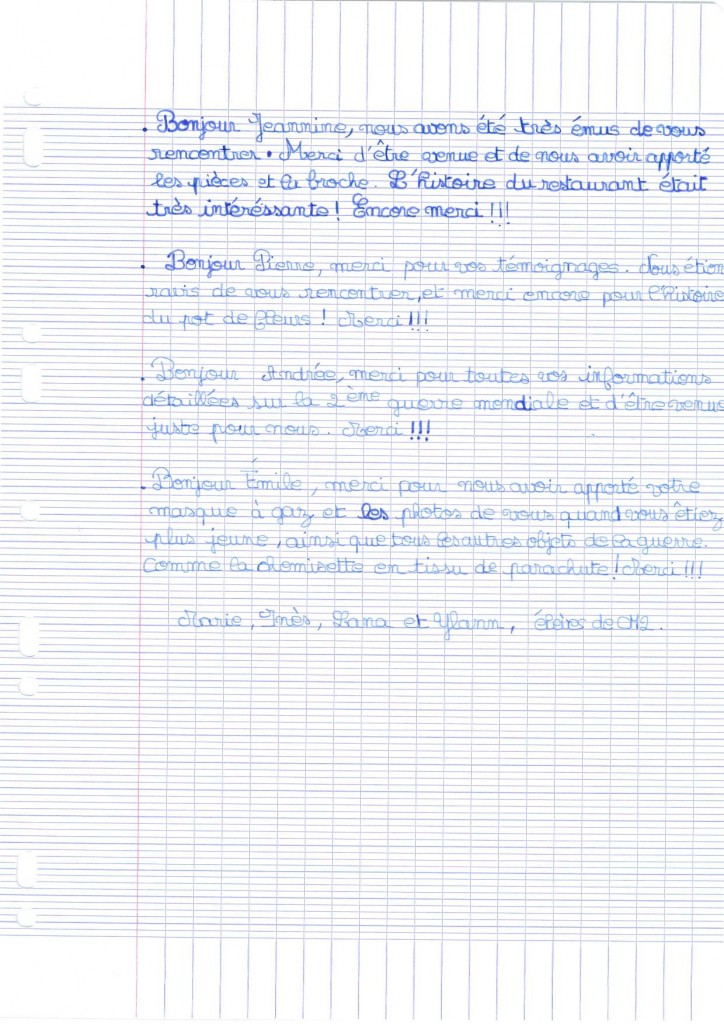 . Bonjour Jeannine, nous avons été très émus de vous
rencontrer. Merci d'être venue et de nous avoir apporté
les pièces et la broche. L'histoire du restaurant était
très intéréssante ! Encore merci !!!
. Bonjour Pierre, merci pour vos témoignages. Nous étion
ravis de vous rencontrer, et merci encore pour l'histoire
du pot de fleurs ! Merci !!!
. Bonjour Andrée, merci pour toutes vos informations
détaillées sur la 2ème guerre mondiale et d'être venue
juste pour nous. Merci !!!
. Bonjour Émile, merci pour nous avoir apporté votre
masque à gaz et les photos de vous quand vous êtiez
plus jeune, ainsi que tous les autres objets de la guerre.
Comme la chemisette en tissu de parachute ! Merci !!!
Marie, Inès, Lana et Ylann, élèves de CM2.